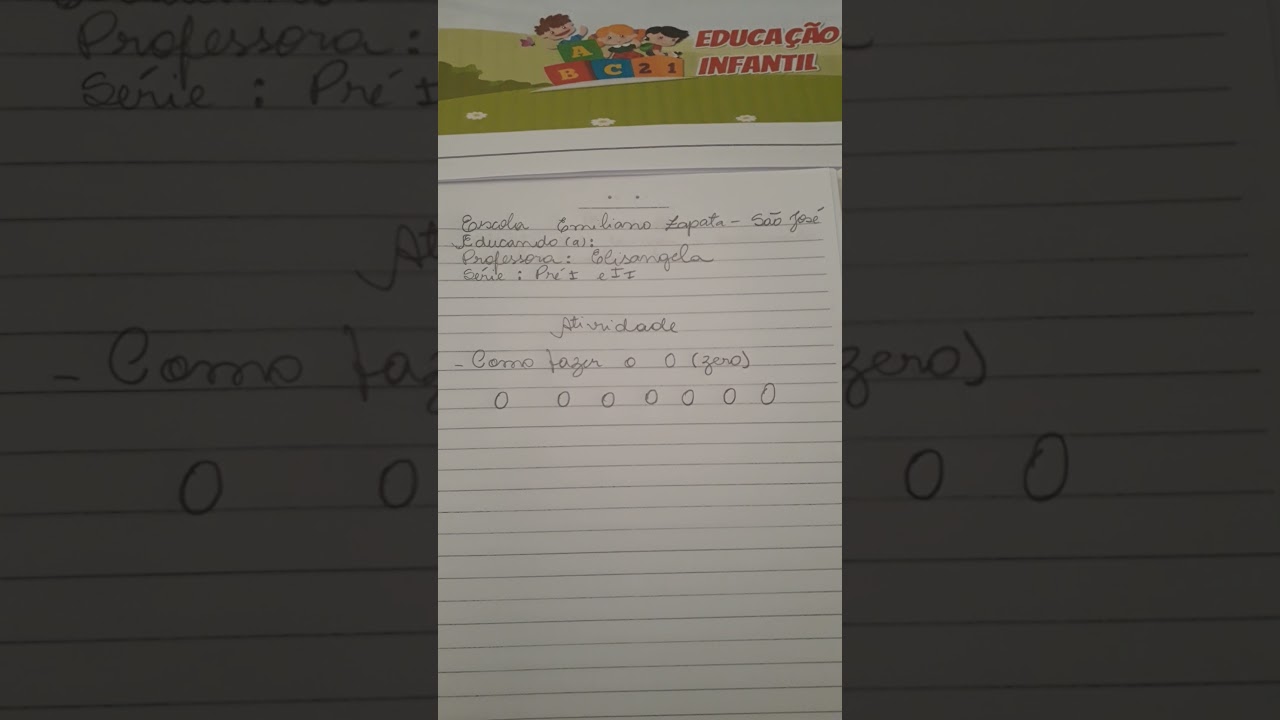 EDUCAÇÃO
INFANTIL
A
B C 2 1
Escola Emiliano Zapata - São José
Educando (a):
Professora: Elisangela
Série: Pré I e II
Atividade
- Como fazer o 0 (zero)
0 0 0 0 0 0 0